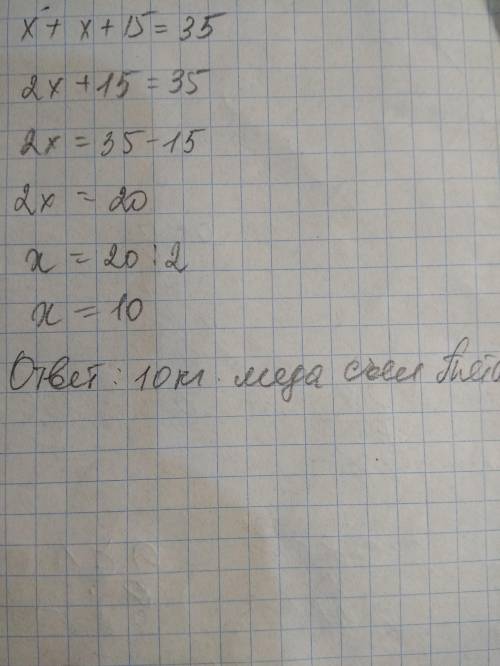 x + x + 15 = 35
2x + 15 = 35
2x = 35 - 15
2x = 20
x = 20 : 2
x = 10
Ответ: 10 кг. меда съел